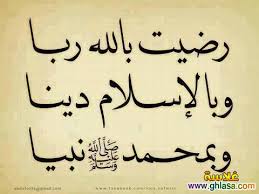 رضيت بالله ربا
وبالإسلام دينا
وبمحمد ﷺ نبيا
غلاسة
www.ghlasa.com